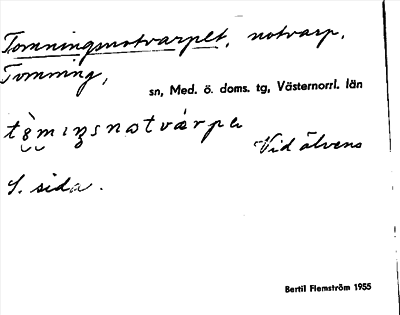 Tomningsnotvarpet, notvarp.
Tomming,
sn, Med. ö. doms. tg, Västernorrl. län
Vid älvens
S. sida.
Bertil Flemström 1955